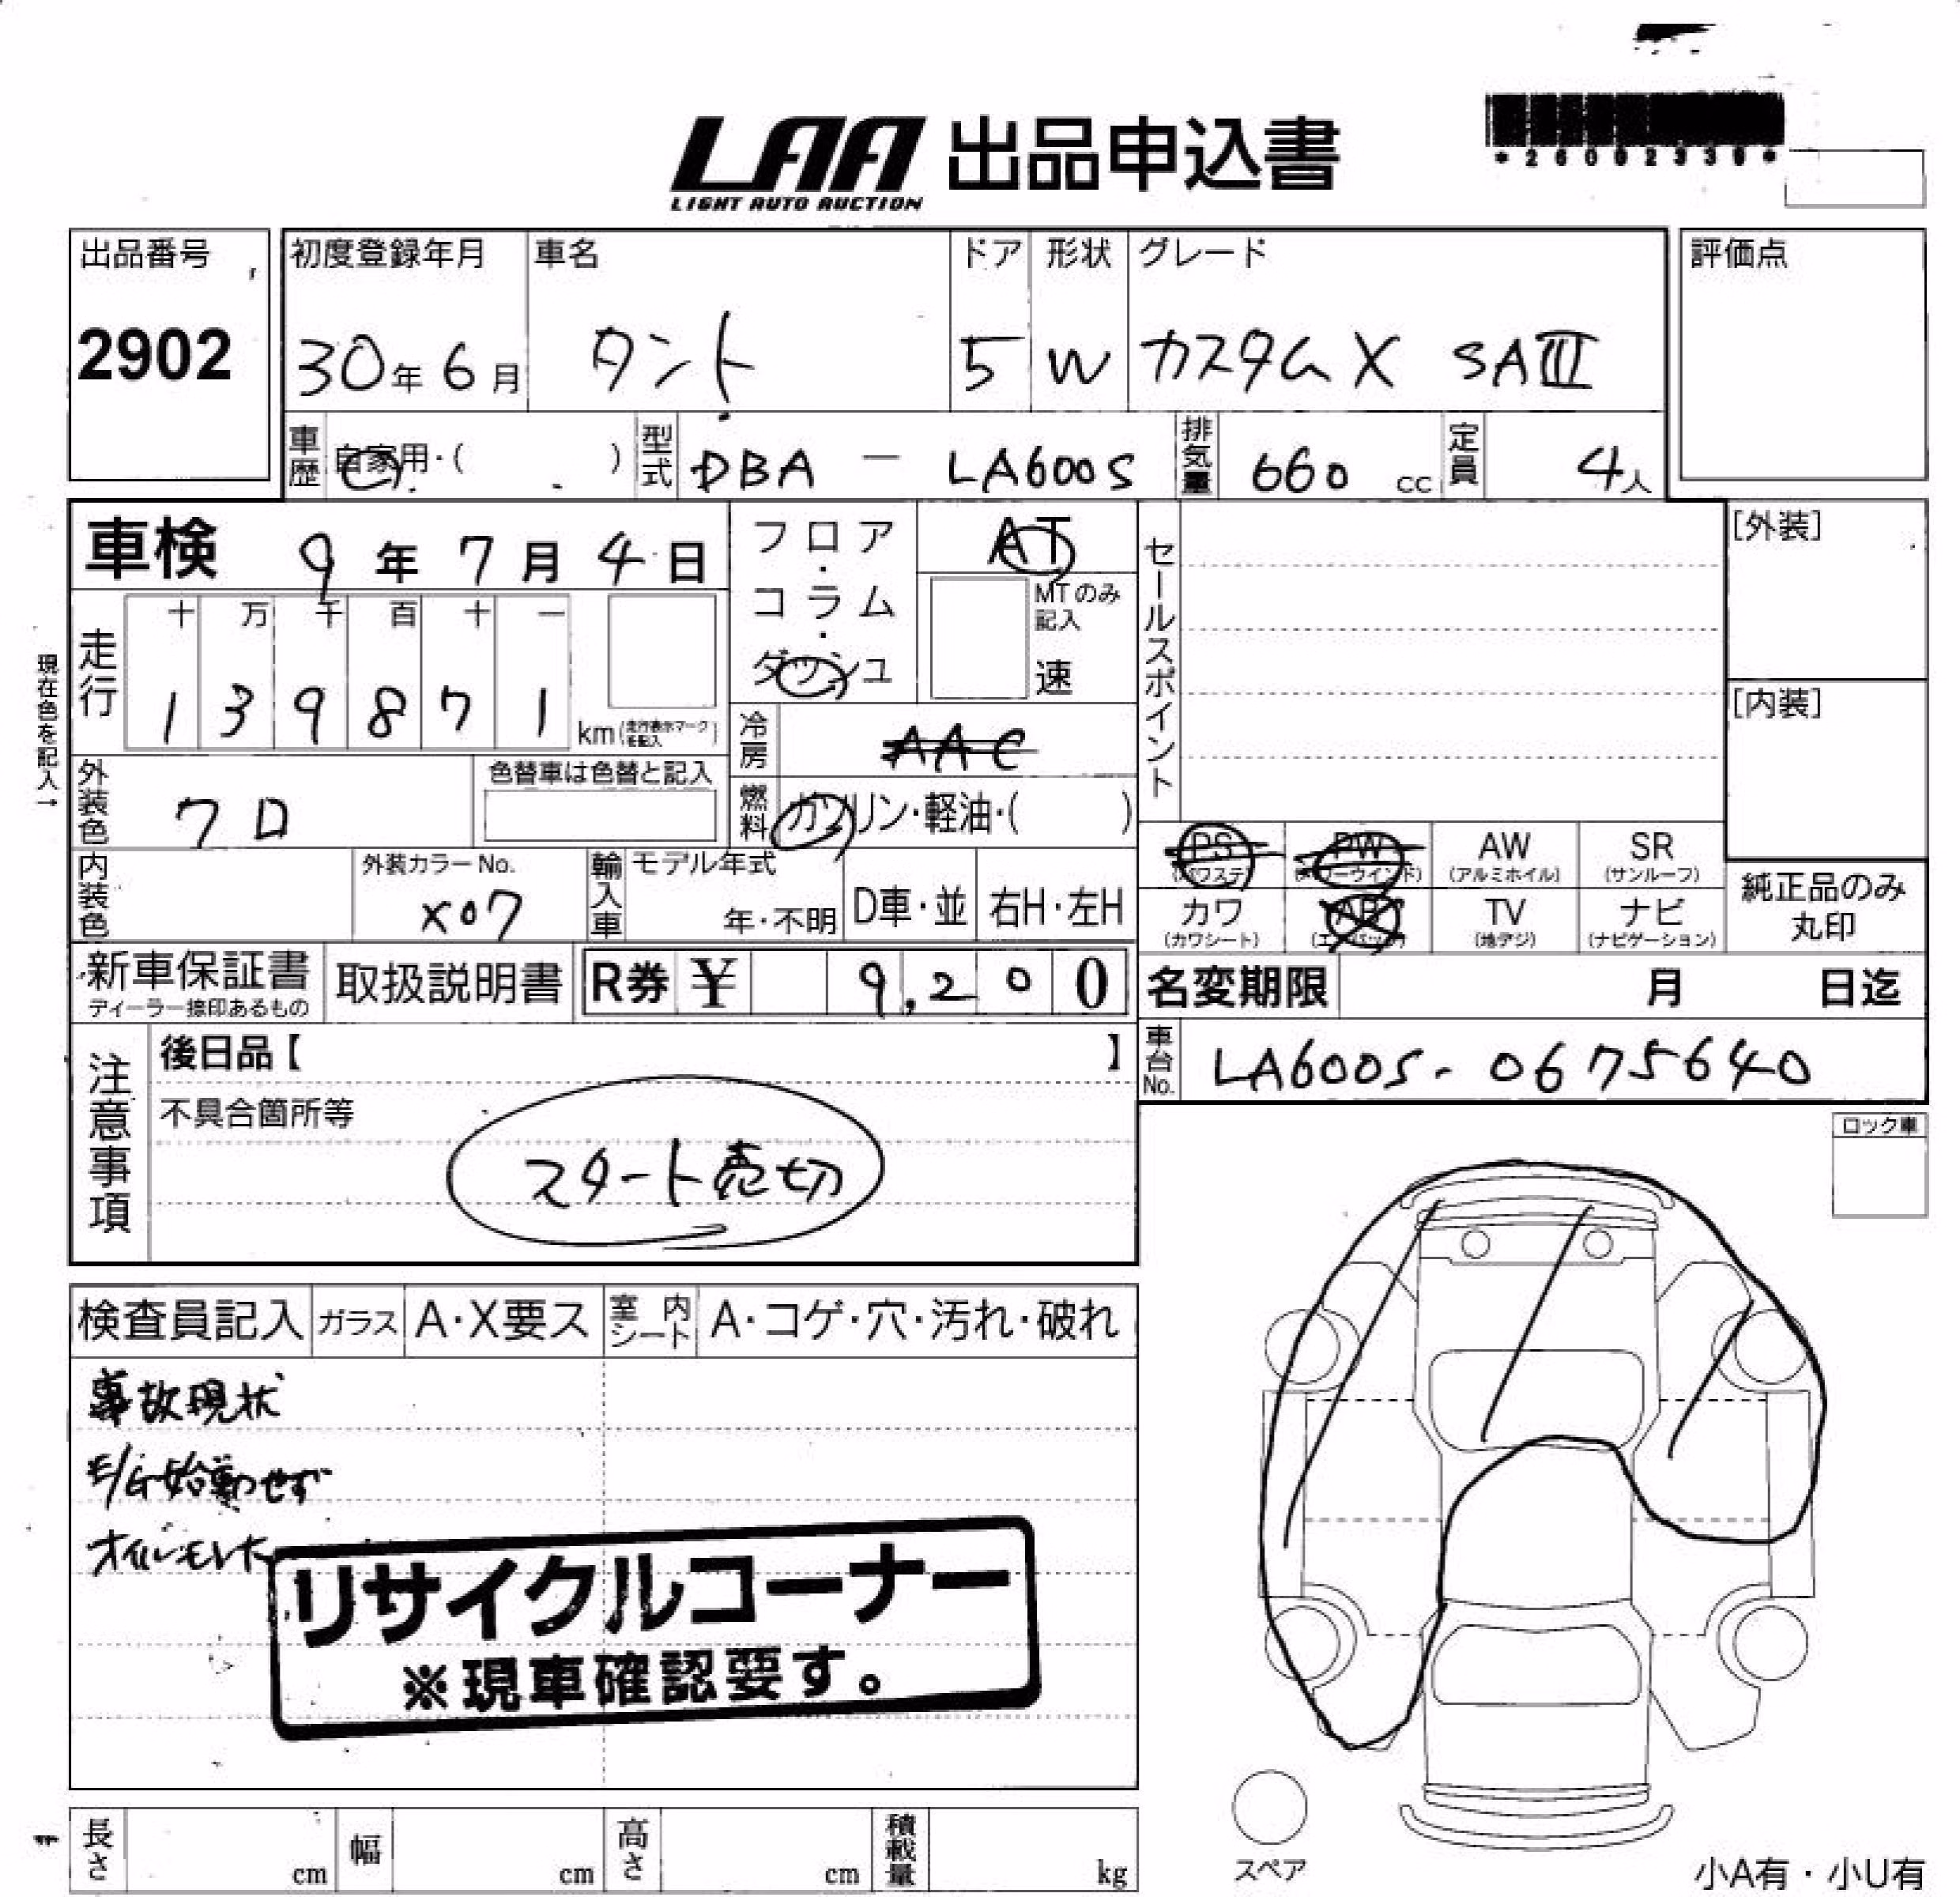 LAA 出品申込書
LIGHT AUTO AUCTION
出品番号 初度登録年月 車名 ドア 形状 グレード 評価点
2902 30年6月 タント 5 W カスタムX SAIII
車歴 自家用・( ) 型式 DBA - LA600S 排気量 660 cc 定員 4人
車検 9年7月4日 フロア・コラム・ダッシュ AT
MTのみ記入 速
セールスポイント
[外装]
[内装]
現在色を記入→
走行 十 万 千 百 十 一
1 3 9 8 7 1 km(走行表示マークを記入)
冷房 AAC
外装色 クロ 色替車は色替と記入
燃料 ガソリン・軽油・( )
PS (パワステ) PW (パワーウインド) AW (アルミホイル) SR (サンルーフ)
カワ (カワシート) AB (エアバッグ) TV (地デジ) ナビ (ナビゲーション)
純正品のみ丸印
内装色 外装カラーNo. X07 輸入車 モデル年式 年・不明 D車・並 右H・左H
新車保証書 ディーラー捺印あるもの 取扱説明書 R券 ¥ 9,200
名変期限 月 日迄
車台No. LA600S-0675640
注意事項
後日品【 】
不具合箇所等
スタート売切
ロック車
検査員記入 ガラス A・X要ス 室内シート A・コゲ・穴・汚れ・破れ
事故現状
E/G始動せず
オイルモレ
リサイクルコーナー
※現車確認要す。
長さ cm 幅 cm 高さ cm 積載量 kg
スペア
小A有・小U有